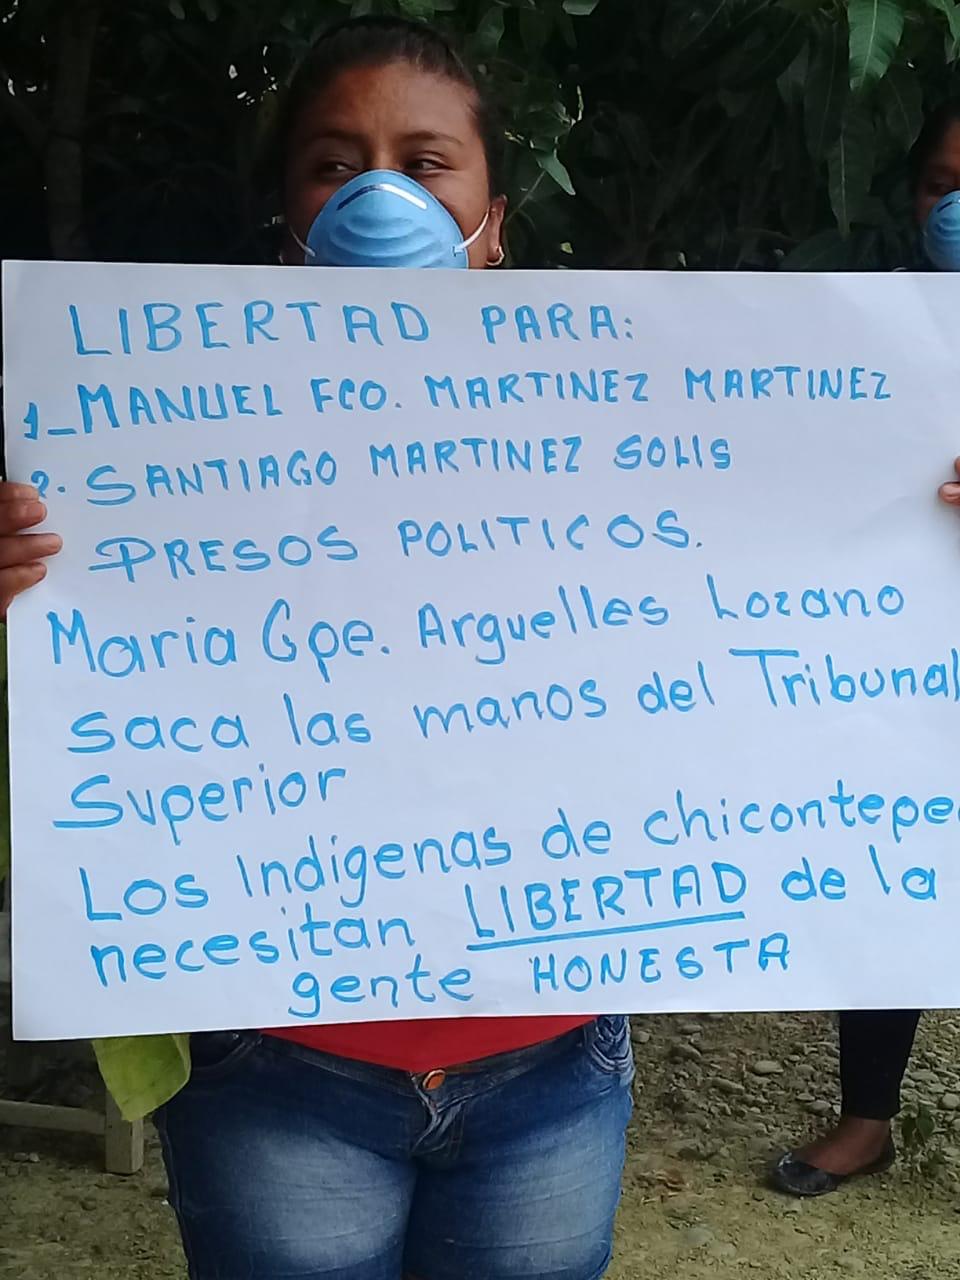 LIBERTAD PARA:
1_MANUEL FCO. MARTINEZ MARTINEZ
2. SANTIAGO MARTINEZ SOLIS
PRESOS POLITICOS.
Maria Gpe. Arguelles Lozano
saca las manos del Tribunal
Superior
Los Indigenas de chicontepec
necesitan LIBERTAD de la
gente HONESTA